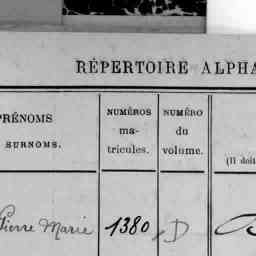 RÉPERTOIRE ALPHA
PRÉNOMS
SURNOMS.
NUMÉROS
ma-
tricules.
NUMÉRO
du
volume.
(Il doit
Pierre Marie 1380 D